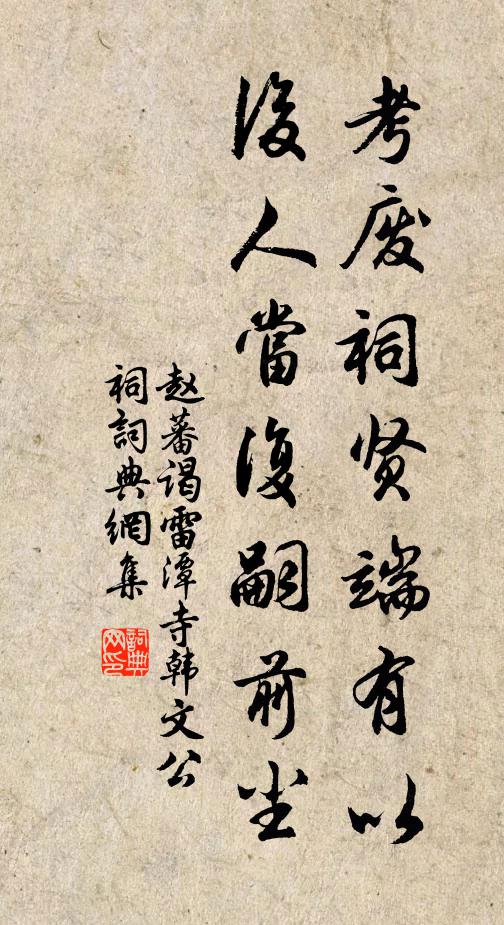 考废祠贤端有以
后人當復嗣前尘
赵蕃谒雷潭寺韩文公
祠詞典網集
詞典
网印